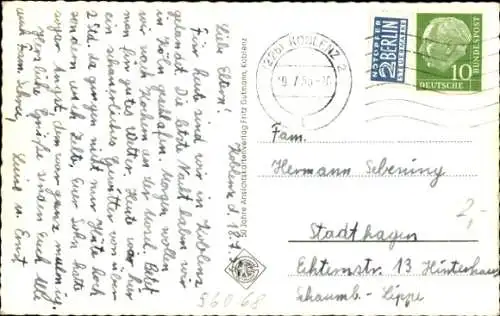 Koblenz d. 18.7.55
Liebe Eltern!
Für heute sind wir in Koblenz
gelandet. Die letzte Nacht haben wir
in Köln geschlafen. Morgen wollen
wir nach Kochem an der Mosel. Bisher
war gutes Wetter. Heute war hier
ein schauerliches Gewitter von über
2 Std. da gingen nicht nur Hüte hoch
sondern auch Zelte. Euer Sohn hatte
sogar Angst, denn es war ganz mulmig.
Herzliche Grüße senden Euch Alle
auch Fam.
Heinz u. Ernst
50 Jahre Ansichtskartenverlag Fritz Gutmann, Koblenz
(22b) KOBLENZ 2
NOTOPFER
2 BERLIN
STEUERMARKE
10
DEUTSCHE
BUNDESPOST
Fam.
Hermann Sebening
Stadthagen
Echternstr. 13 Hinterhaus
Schaumb.-Lippe
2,-
56068